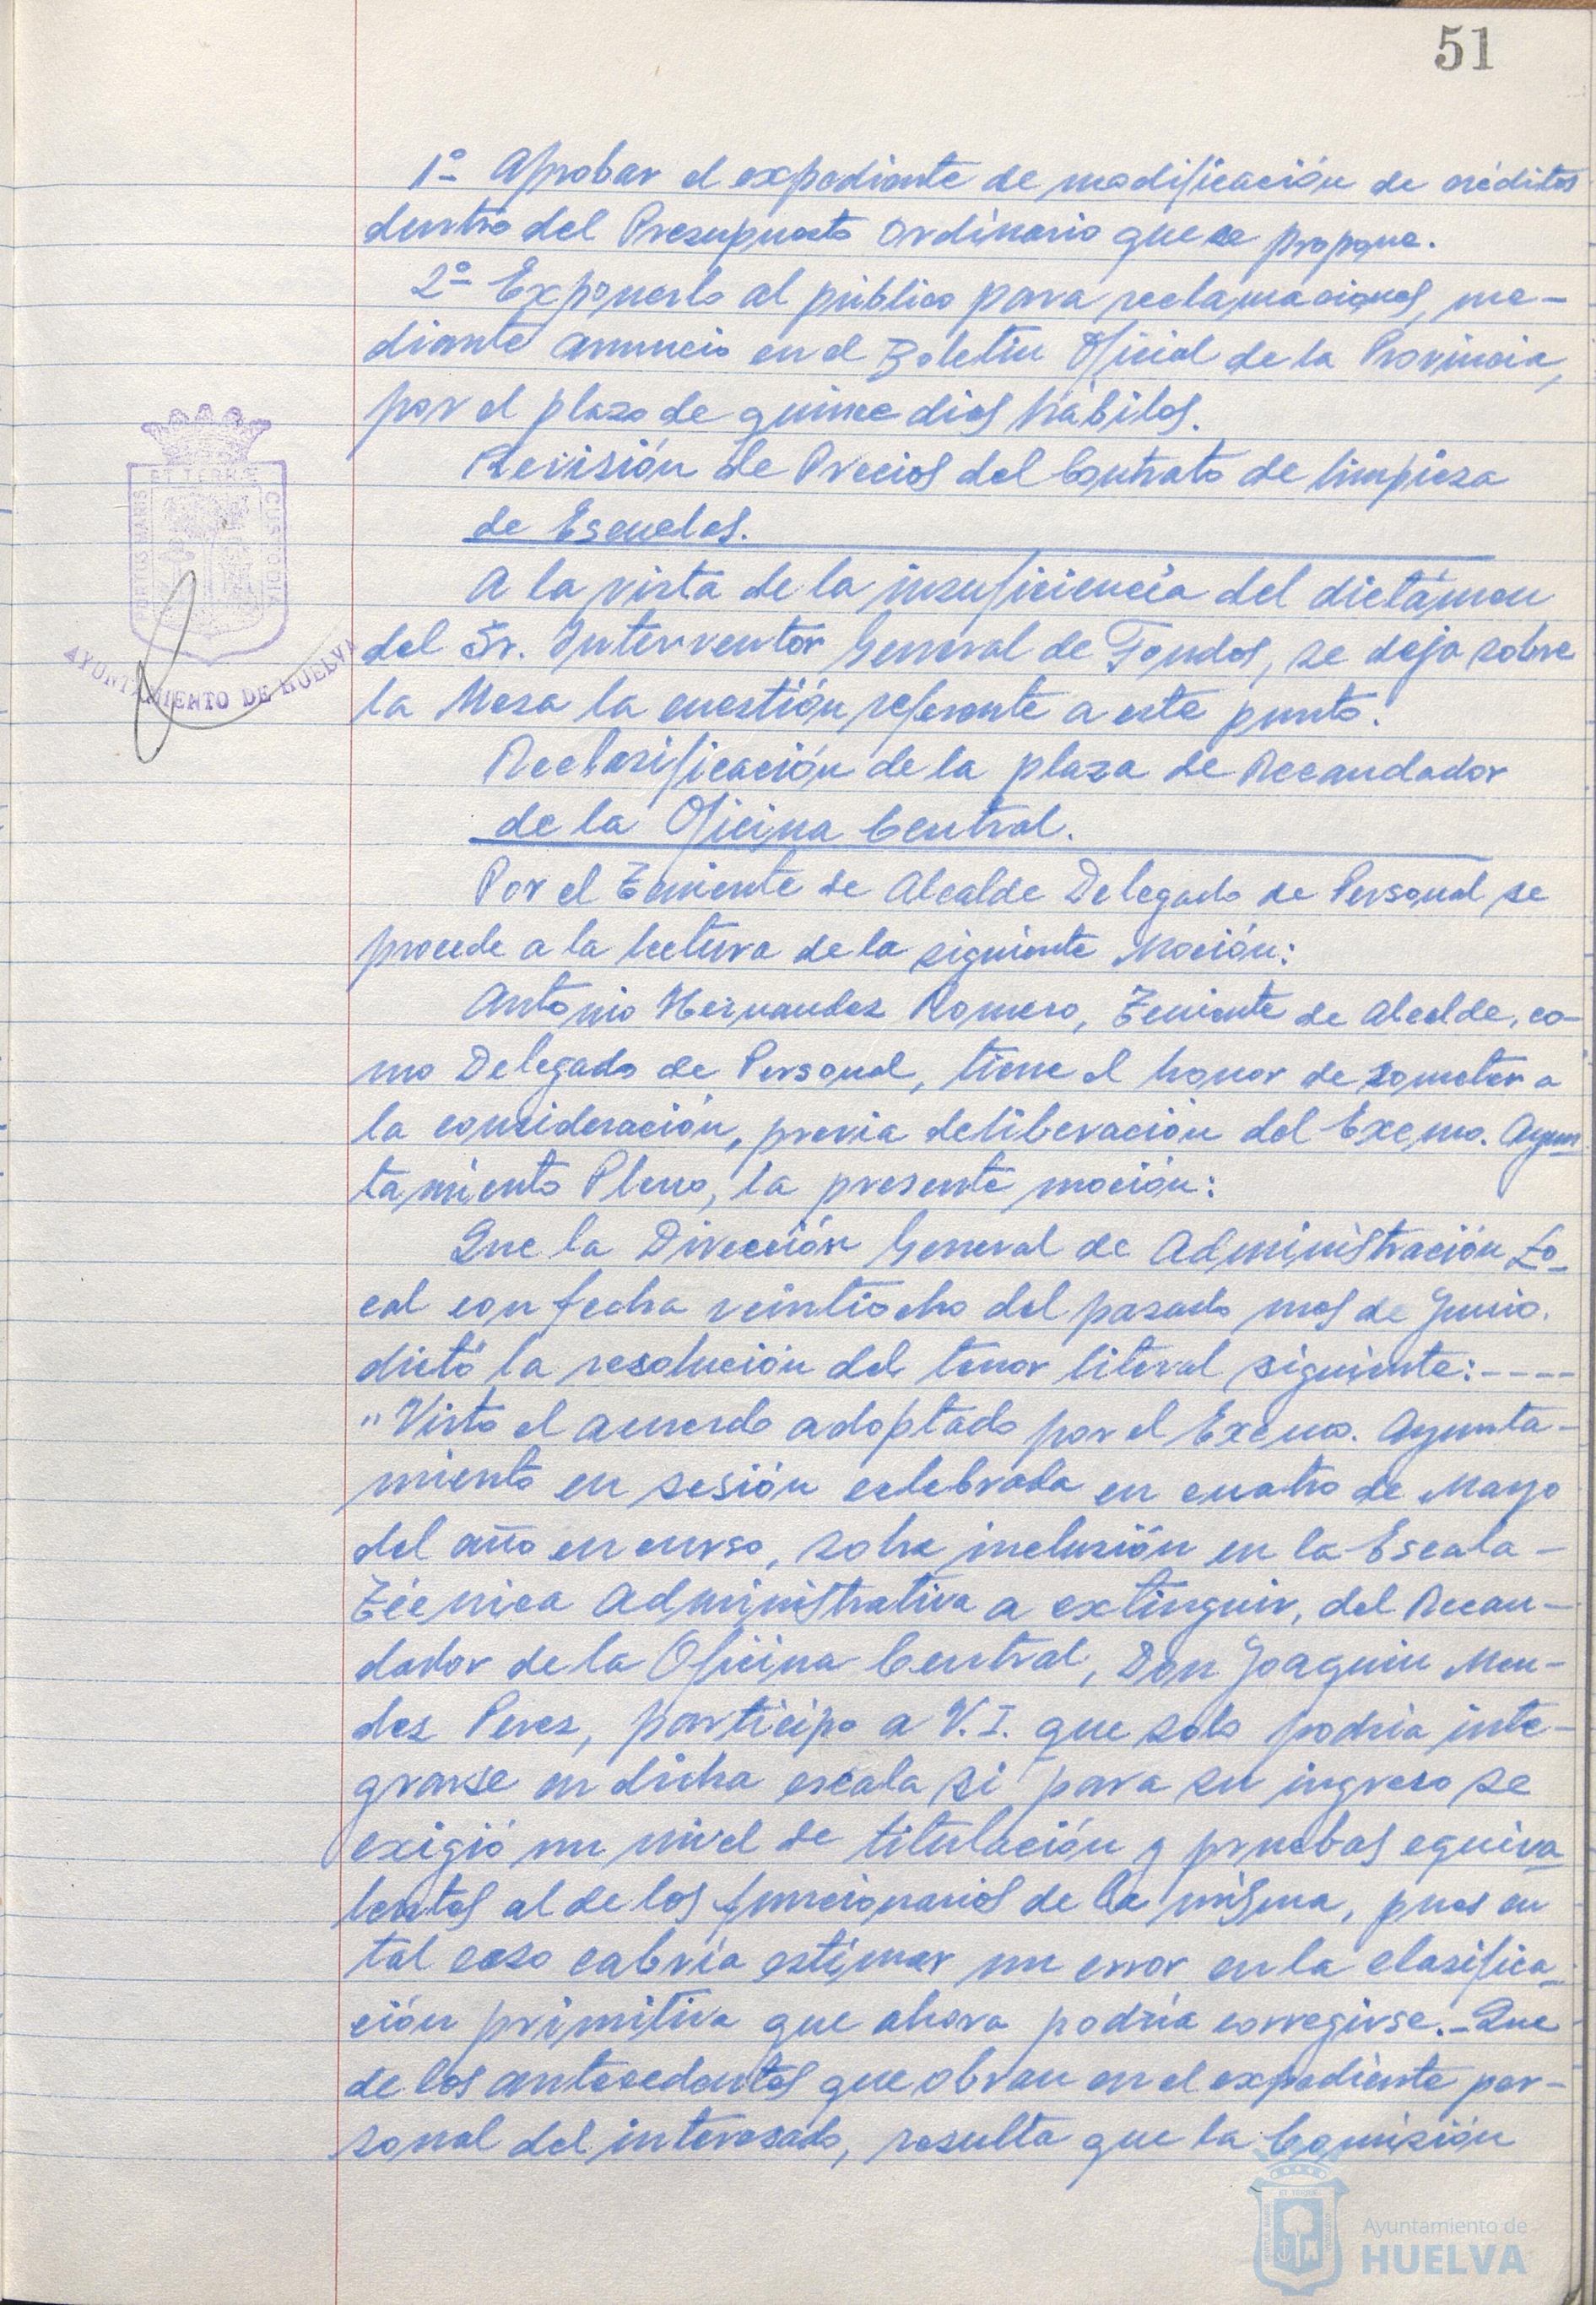 51
1º- Aprobar el expediente de modificación de créditos
dentro del Presupuesto Ordinario que se propone.
2º- Exponerlo al público para reclamaciones, me-
diante anuncio en el Boletín Oficial de la Provincia,
por el plazo de quince dias hábiles.
Revisión de Precios del Contrato de limpieza
de Escuelas.
A la vista de la insuficiencia del dictámen
del Sr. Interventor General de Fondos, se deja sobre
la Mesa la cuestión referente a este punto.
Reclasificación de la plaza de Recaudador
de la Oficina Central.
Por el Teniente de Alcalde Delegado de Personal se
procede a la lectura de la siguiente Moción:
Antonio Hernandez Romero, Teniente de Alcalde, co-
mo Delegado de Personal, tiene el honor de someter a
la consideración, previa deliberación del Excmo. Ayun-
tamiento Pleno, la presente moción:
Que la Dirección General de Administración Lo-
cal con fecha veintiocho del pasado mes de Junio.
dictó la resolución del tenor literal siguiente:----
"Visto el acuerdo adoptado por el Excmo. Ayunta-
miento en sesión celebrada en cuatro de Mayo
del año en curso, sobre inclusión en la Escala-
Técnica Administrativa a extinguir, del Recau-
dador de la Oficina Central, Don Joaquin Men-
dez Perez, participo a V.I. que solo podria inte-
grarse en dicha escala si para su ingreso se
exigió un nivel de titulación y pruebas equiva-
lentes al de los funcionarios de la misma, pues en
tal caso cabría estimar un error en la clasifica-
ción primitiva que ahora podría corregirse.-Que
de los antecedentes que obran en el expediente per-
sonal del interesado, resulta que la Comisión
PORTUS MARIS ET TERRE CUSTODIA
AYUNTAMIENTO DE HUELVA
Ayuntamiento de
HUELVA